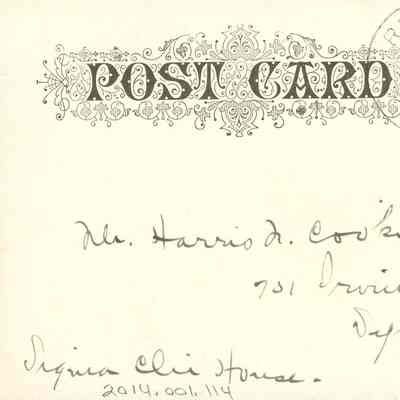 POST CARD
Mr. Harris N. Cook
731 Irvin
Sy
Sigma Chi House.
2014.001.114